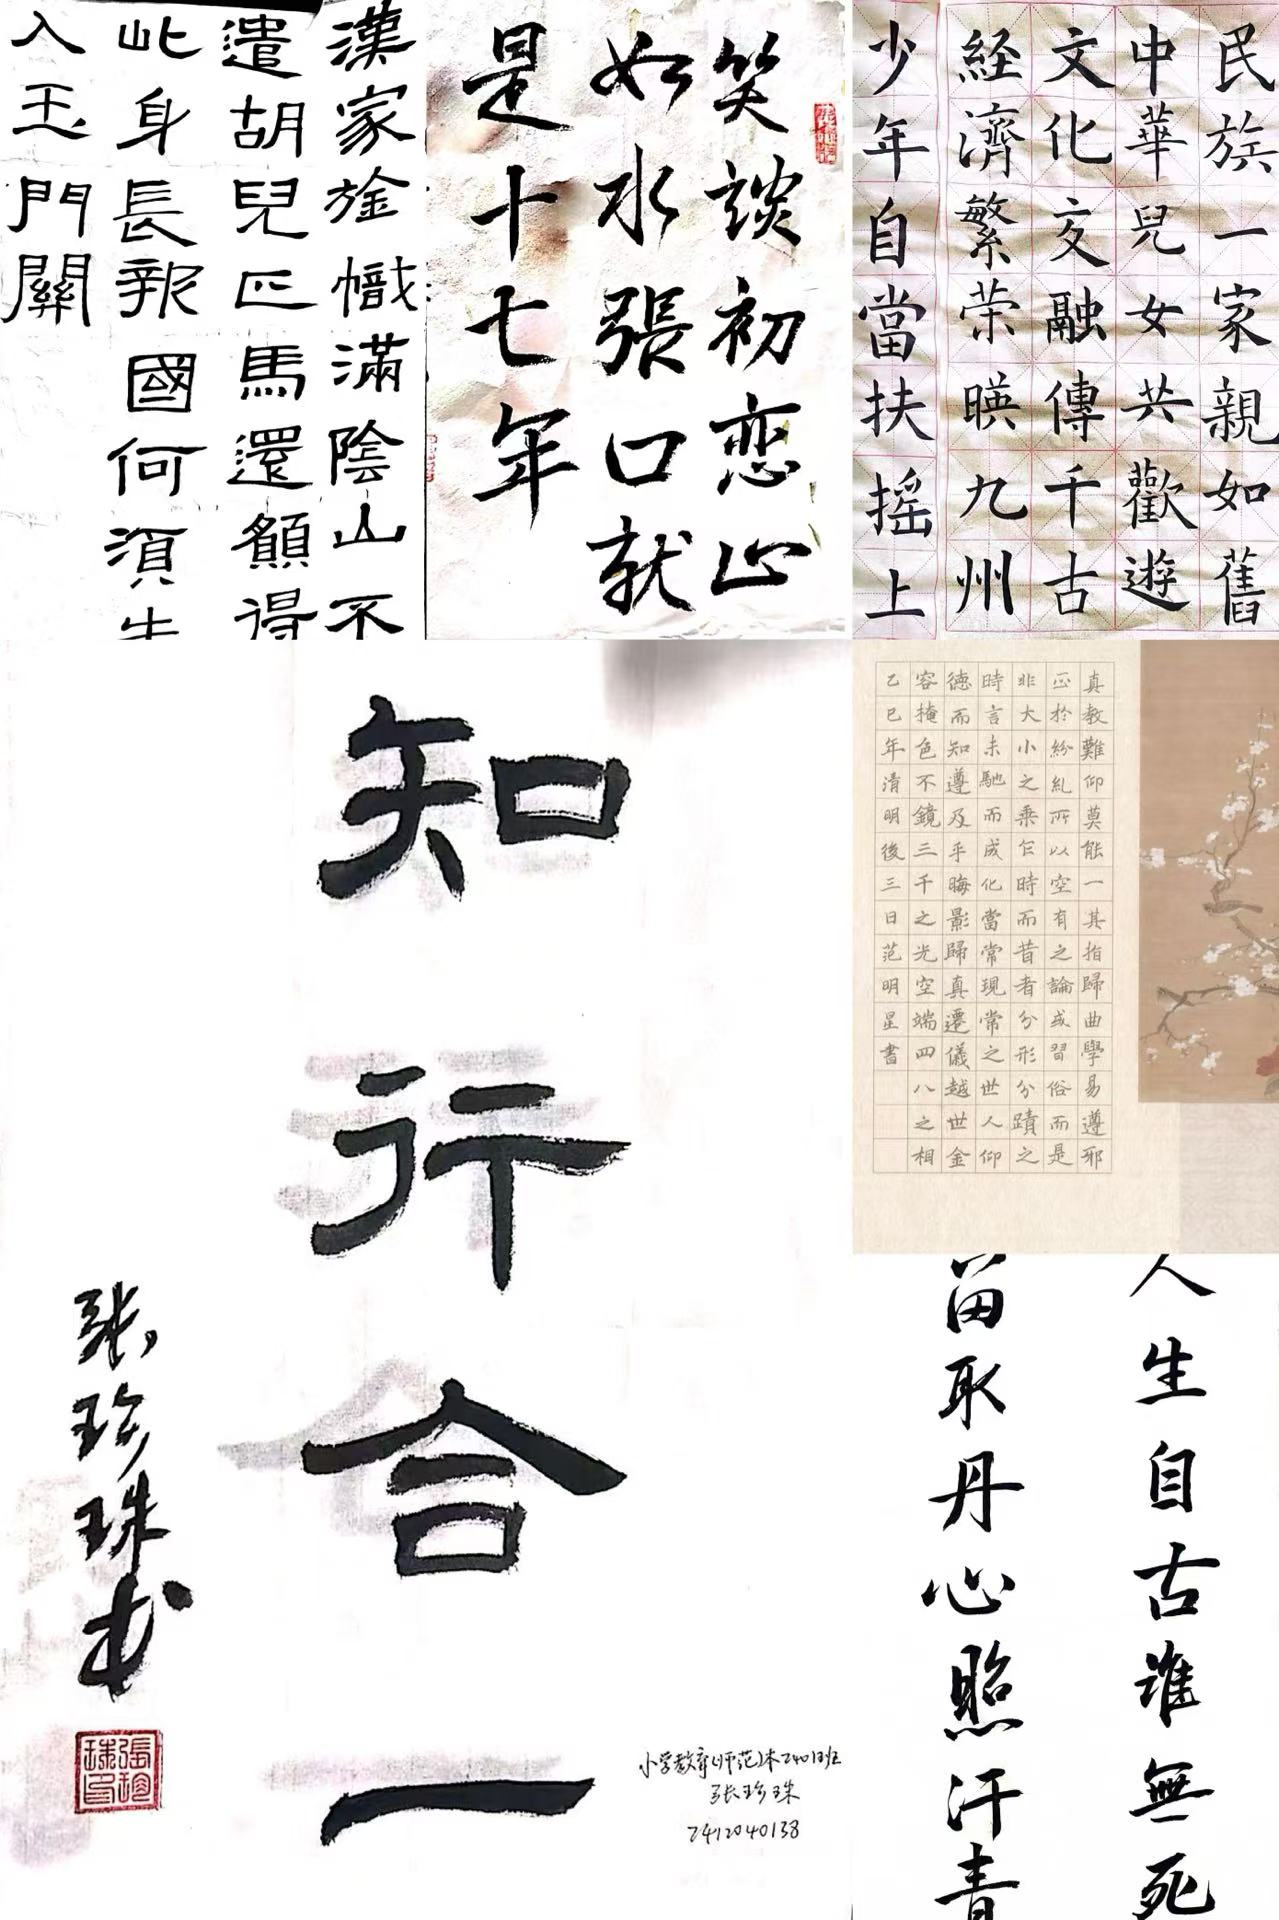 漢家旌幟滿陰山不
遣胡兒匹馬還願得
此身長報國何須生
入玉門關
笑談初恋心
如水張口就
是十七年
民族一家親如舊
中華兒女共歡遊
文化交融傳千古
経濟繁荣暎九州
少年自當扶摇上
知行合一
张珍珠书
張珍珠印
小学教育(师范)本2401班
张珍珠
2412040138
真教難仰莫能一其指歸曲學易遵邪
正於紛糺所以空有之論或習俗而是
非大小之乗乍時而昔者分形分蹟之
時言未馳而成化當常現常之世人仰
德而知遵及乎晦影歸真遷儀越世金
容掩色不鏡三千之光空端四八之相
乙巳年清明後三日范明星書
人生自古谁無死
留取丹心照汗青